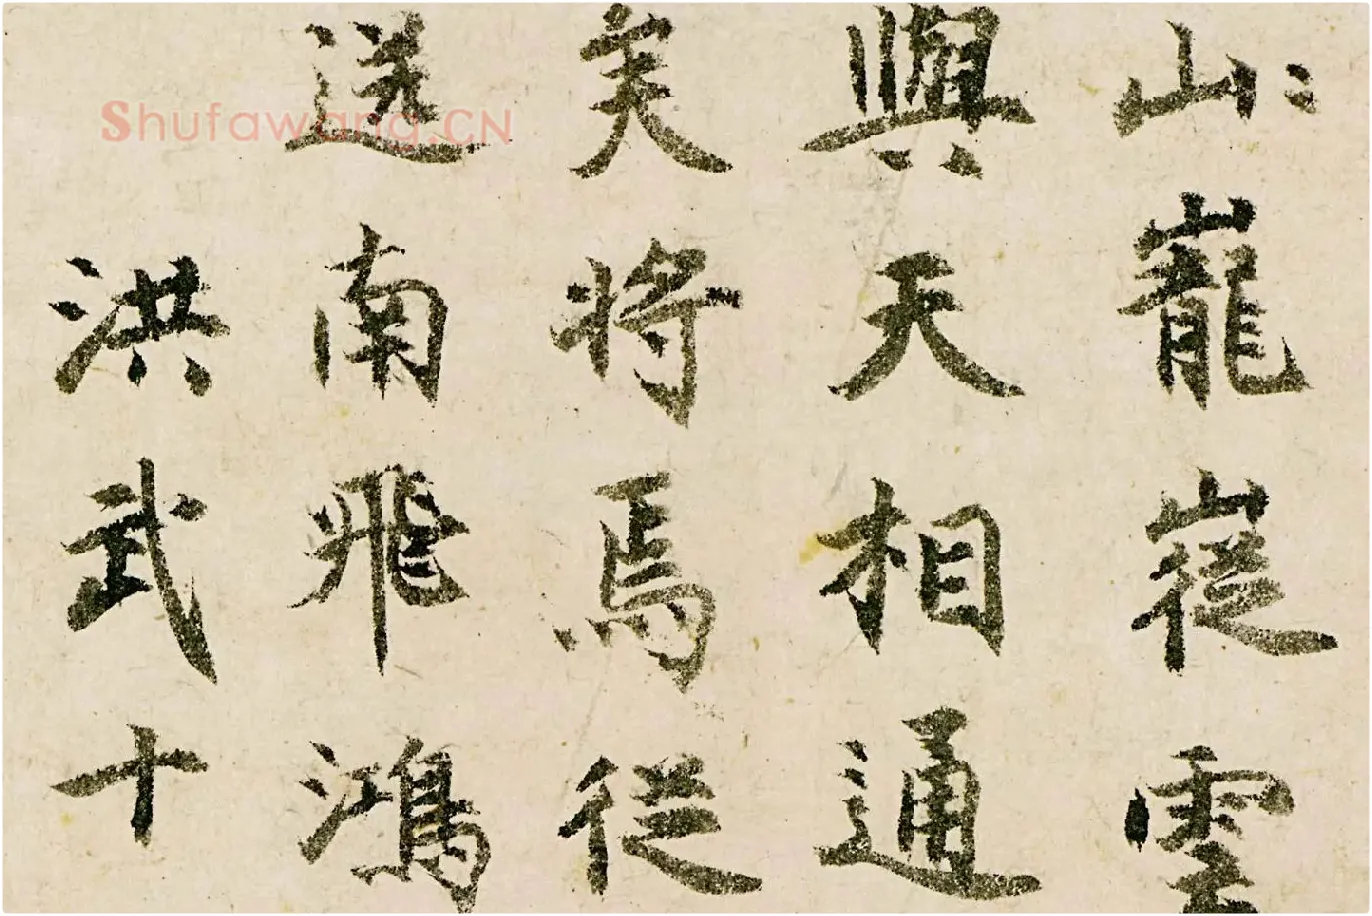 山巃嵸雲
與天相通
矣将焉從
送南飛鴻
洪武十
Shufawang.CN